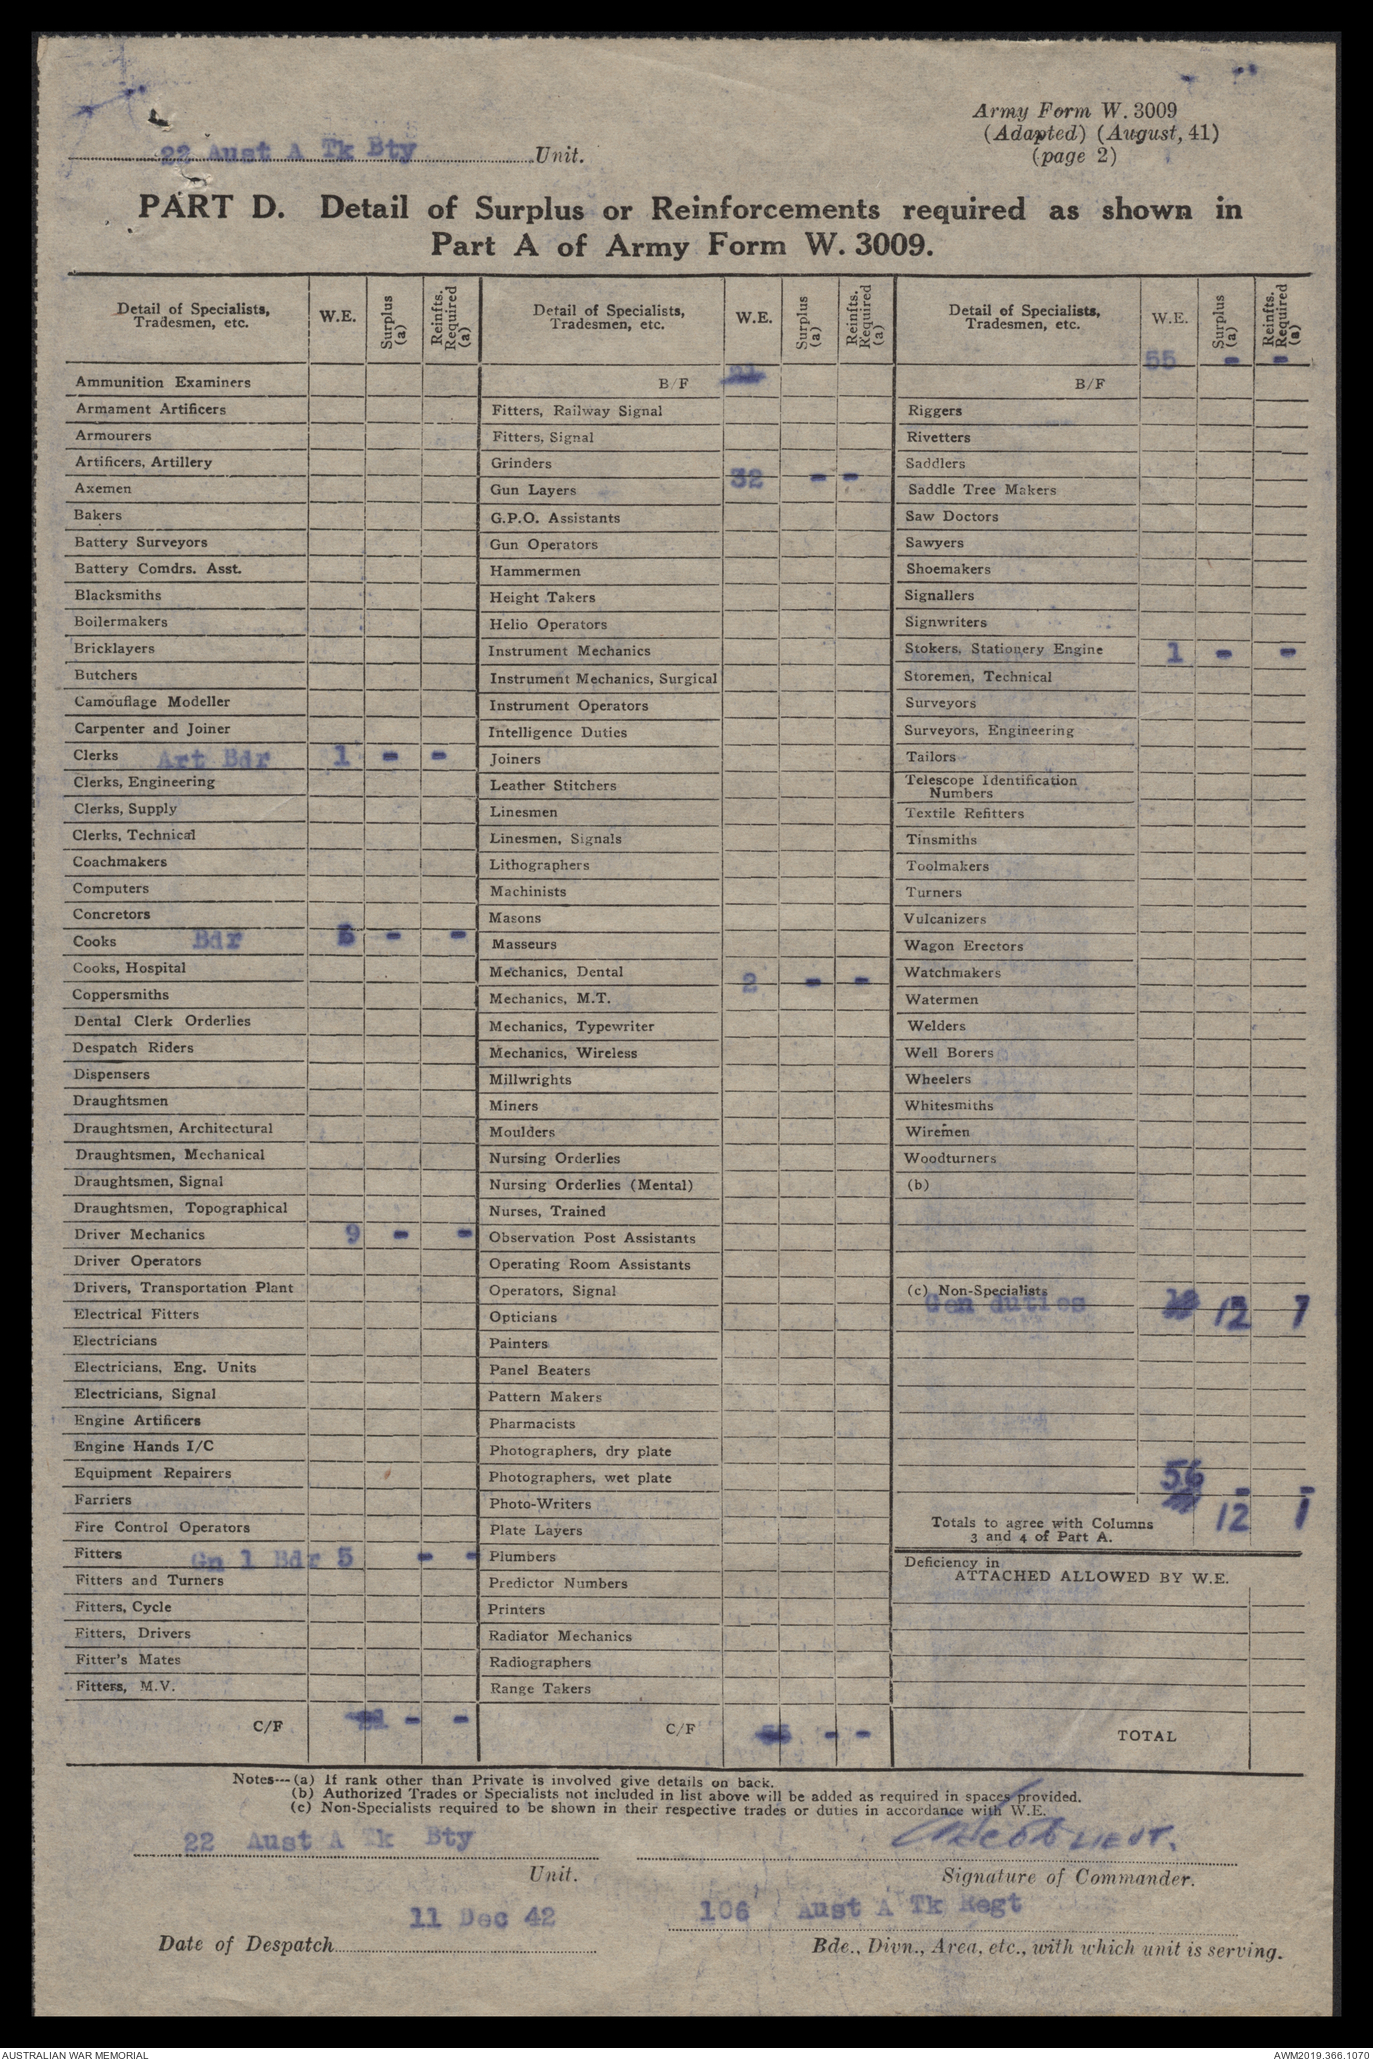 Army Form W. 3009
(Adapted) (August, 41)
(page 2)
22 Aust A Tk Bty Unit.
PART D. Detail of Surplus or Reinforcements required as shown in
Part A of Army Form W. 3009.
Detail of Specialists, Tradesmen, etc. W.E. Surplus (a) Reinfts. Required (a)
Ammunition Examiners
Armament Artificers
Armourers
Artificers, Artillery
Axemen
Bakers
Battery Surveyors
Battery Comdrs. Asst.
Blacksmiths
Boilermakers
Bricklayers
Butchers
Camouflage Modeller
Carpenter and Joiner
Clerks Art Bdr 1 - -
Clerks, Engineering
Clerks, Supply
Clerks, Technical
Coachmakers
Computers
Concretors
Cooks Bdr - -
Cooks, Hospital
Coppersmiths
Dental Clerk Orderlies
Despatch Riders
Dispensers
Draughtsmen
Draughtsmen, Architectural
Draughtsmen, Mechanical
Draughtsmen, Signal
Draughtsmen, Topographical
Driver Mechanics 9 - -
Driver Operators
Drivers, Transportation Plant
Electrical Fitters
Electricians
Electricians, Eng. Units
Electricians, Signal
Engine Artificers
Engine Hands I/C
Equipment Repairers
Farriers
Fire Control Operators
Fitters Gn 1 Bdr 5 - -
Fitters and Turners
Fitters, Cycle
Fitters, Drivers
Fitter's Mates
Fitters, M.V.
C/F 21 - -
Detail of Specialists, Tradesmen, etc. W.E. Surplus (a) Reinfts. Required (a)
B/F 21
Fitters, Railway Signal
Fitters, Signal
Grinders
Gun Layers 32 - -
G.P.O. Assistants
Gun Operators
Hammermen
Height Takers
Helio Operators
Instrument Mechanics
Instrument Mechanics, Surgical
Instrument Operators
Intelligence Duties
Joiners
Leather Stitchers
Linesmen
Linesmen, Signals
Lithographers
Machinists
Masons
Masseurs
Mechanics, Dental
Mechanics, M.T. 2 - -
Mechanics, Typewriter
Mechanics, Wireless
Millwrights
Miners
Moulders
Nursing Orderlies
Nursing Orderlies (Mental)
Nurses, Trained
Observation Post Assistants
Operating Room Assistants
Operators, Signal
Opticians
Painters
Panel Beaters
Pattern Makers
Pharmacists
Photographers, dry plate
Photographers, wet plate
Photo-Writers
Plate Layers
Plumbers
Predictor Numbers
Printers
Radiator Mechanics
Radiographers
Range Takers
C/F 55 - -
Detail of Specialists, Tradesmen, etc. W.E. Surplus (a) Reinfts. Required (a)
B/F 55 - -
Riggers
Rivetters
Saddlers
Saddle Tree Makers
Saw Doctors
Sawyers
Shoemakers
Signallers
Signwriters
Stokers, Stationery Engine 1 - -
Storemen, Technical
Surveyors
Surveyors, Engineering
Tailors
Telescope Identification
Numbers
Textile Refitters
Tinsmiths
Toolmakers
Turners
Vulcanizers
Wagon Erectors
Watchmakers
Watermen
Welders
Well Borers
Wheelers
Whitesmiths
Wiremen
Woodturners
(b)
(c) Non-Specialists
Gen duties 12
56 - -
Totals to agree with Columns
3 and 4 of Part A. 12 1
Deficiency in
ATTACHED ALLOWED BY W.E.
TOTAL
Notes---(a) If rank other than Private is involved give details on back.
(b) Authorized Trades or Specialists not included in list above will be added as required in spaces provided.
(c) Non-Specialists required to be shown in their respective trades or duties in accordance with W.E.
22 Aust A Tk Bty LIEUT.
Unit. Signature of Commander.
11 Dec 42 106 Aust A Tk Regt
Date of Despatch Bde., Divn., Area, etc., with which unit is serving.
AUSTRALIAN WAR MEMORIAL AWM2019.366.1070